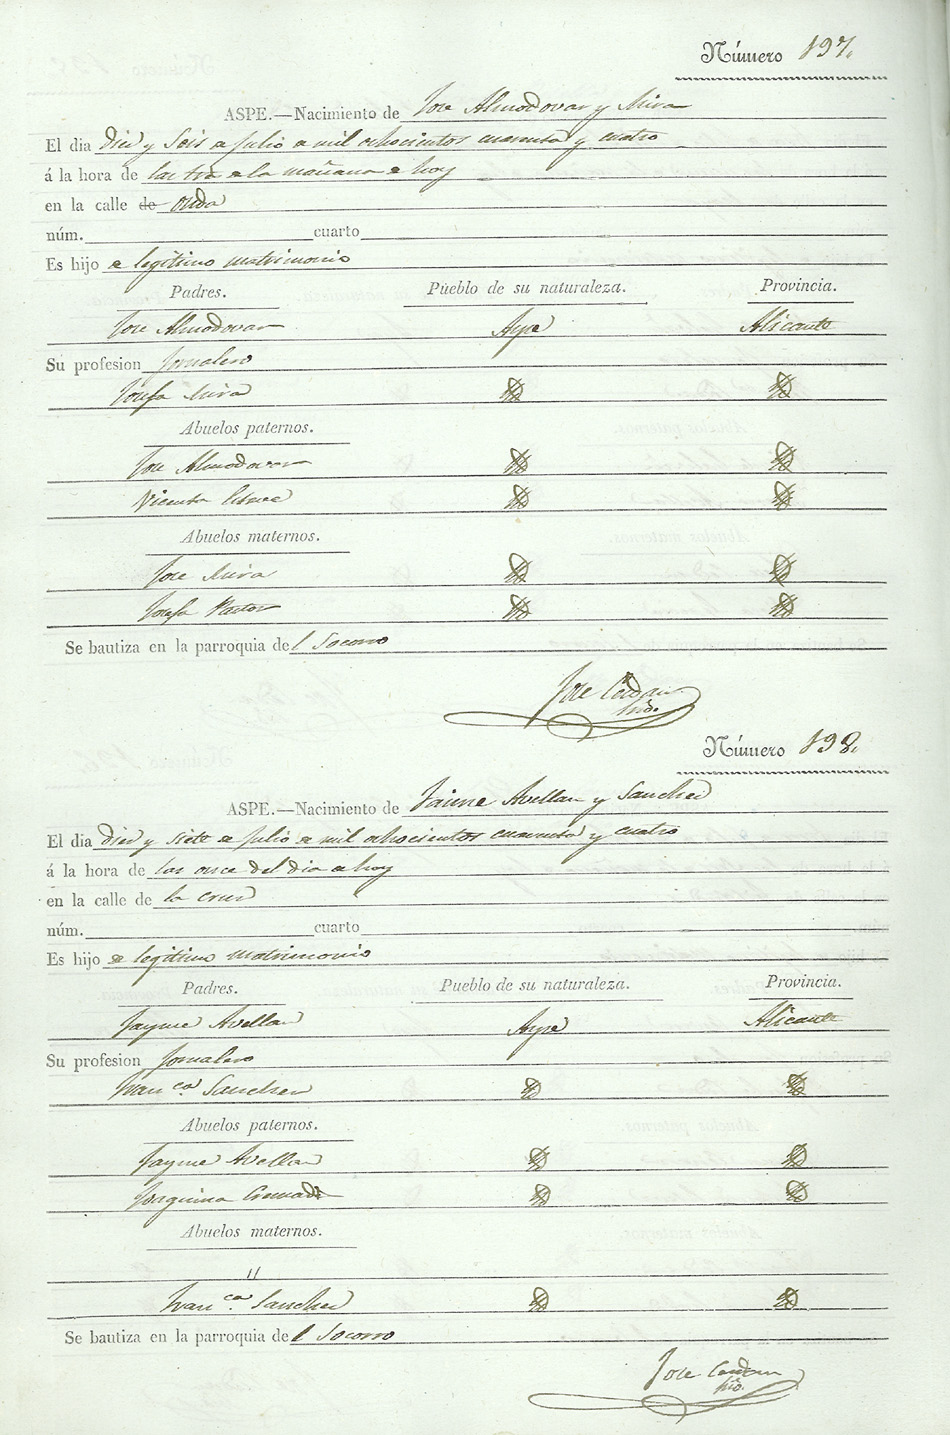 Número 197.
ASPE.—Nacimiento de Jose Almodovar y Mira
El dia diez y seis de Julio de mil ochocientos cuarenta y cuatro
á la hora de las tres de la mañana de hoy
en la calle de Onda
núm. cuarto
Es hijo de legitimo matrimonio
Padres. Pueblo de su naturaleza. Provincia.
Jose Almodovar Aspe Alicante
Su profesion Jornalero
Josefa Mira
Abuelos paternos.
Jose Almodovar
Vicenta
Abuelos maternos.
Jose Mira
Josefa Pastor
Se bautiza en la parroquia del Socorro
Jose
Número 198.
ASPE.—Nacimiento de Jaime Avellan y Sanchez
El dia diez y siete de Julio de mil ochocientos cuarenta y cuatro
á la hora de las once del dia de hoy
en la calle de la cruz
núm. cuarto
Es hijo de legitimo matrimonio
Padres. Pueblo de su naturaleza. Provincia.
Jayme Avellan Aspe Alicante
Su profesion Jornalero
Franca. Sanchez
Abuelos paternos.
Jayme Avellan
Joaquina Cremades
Abuelos maternos.
"
Franca. Sanchez
Se bautiza en la parroquia del Socorro
Jose